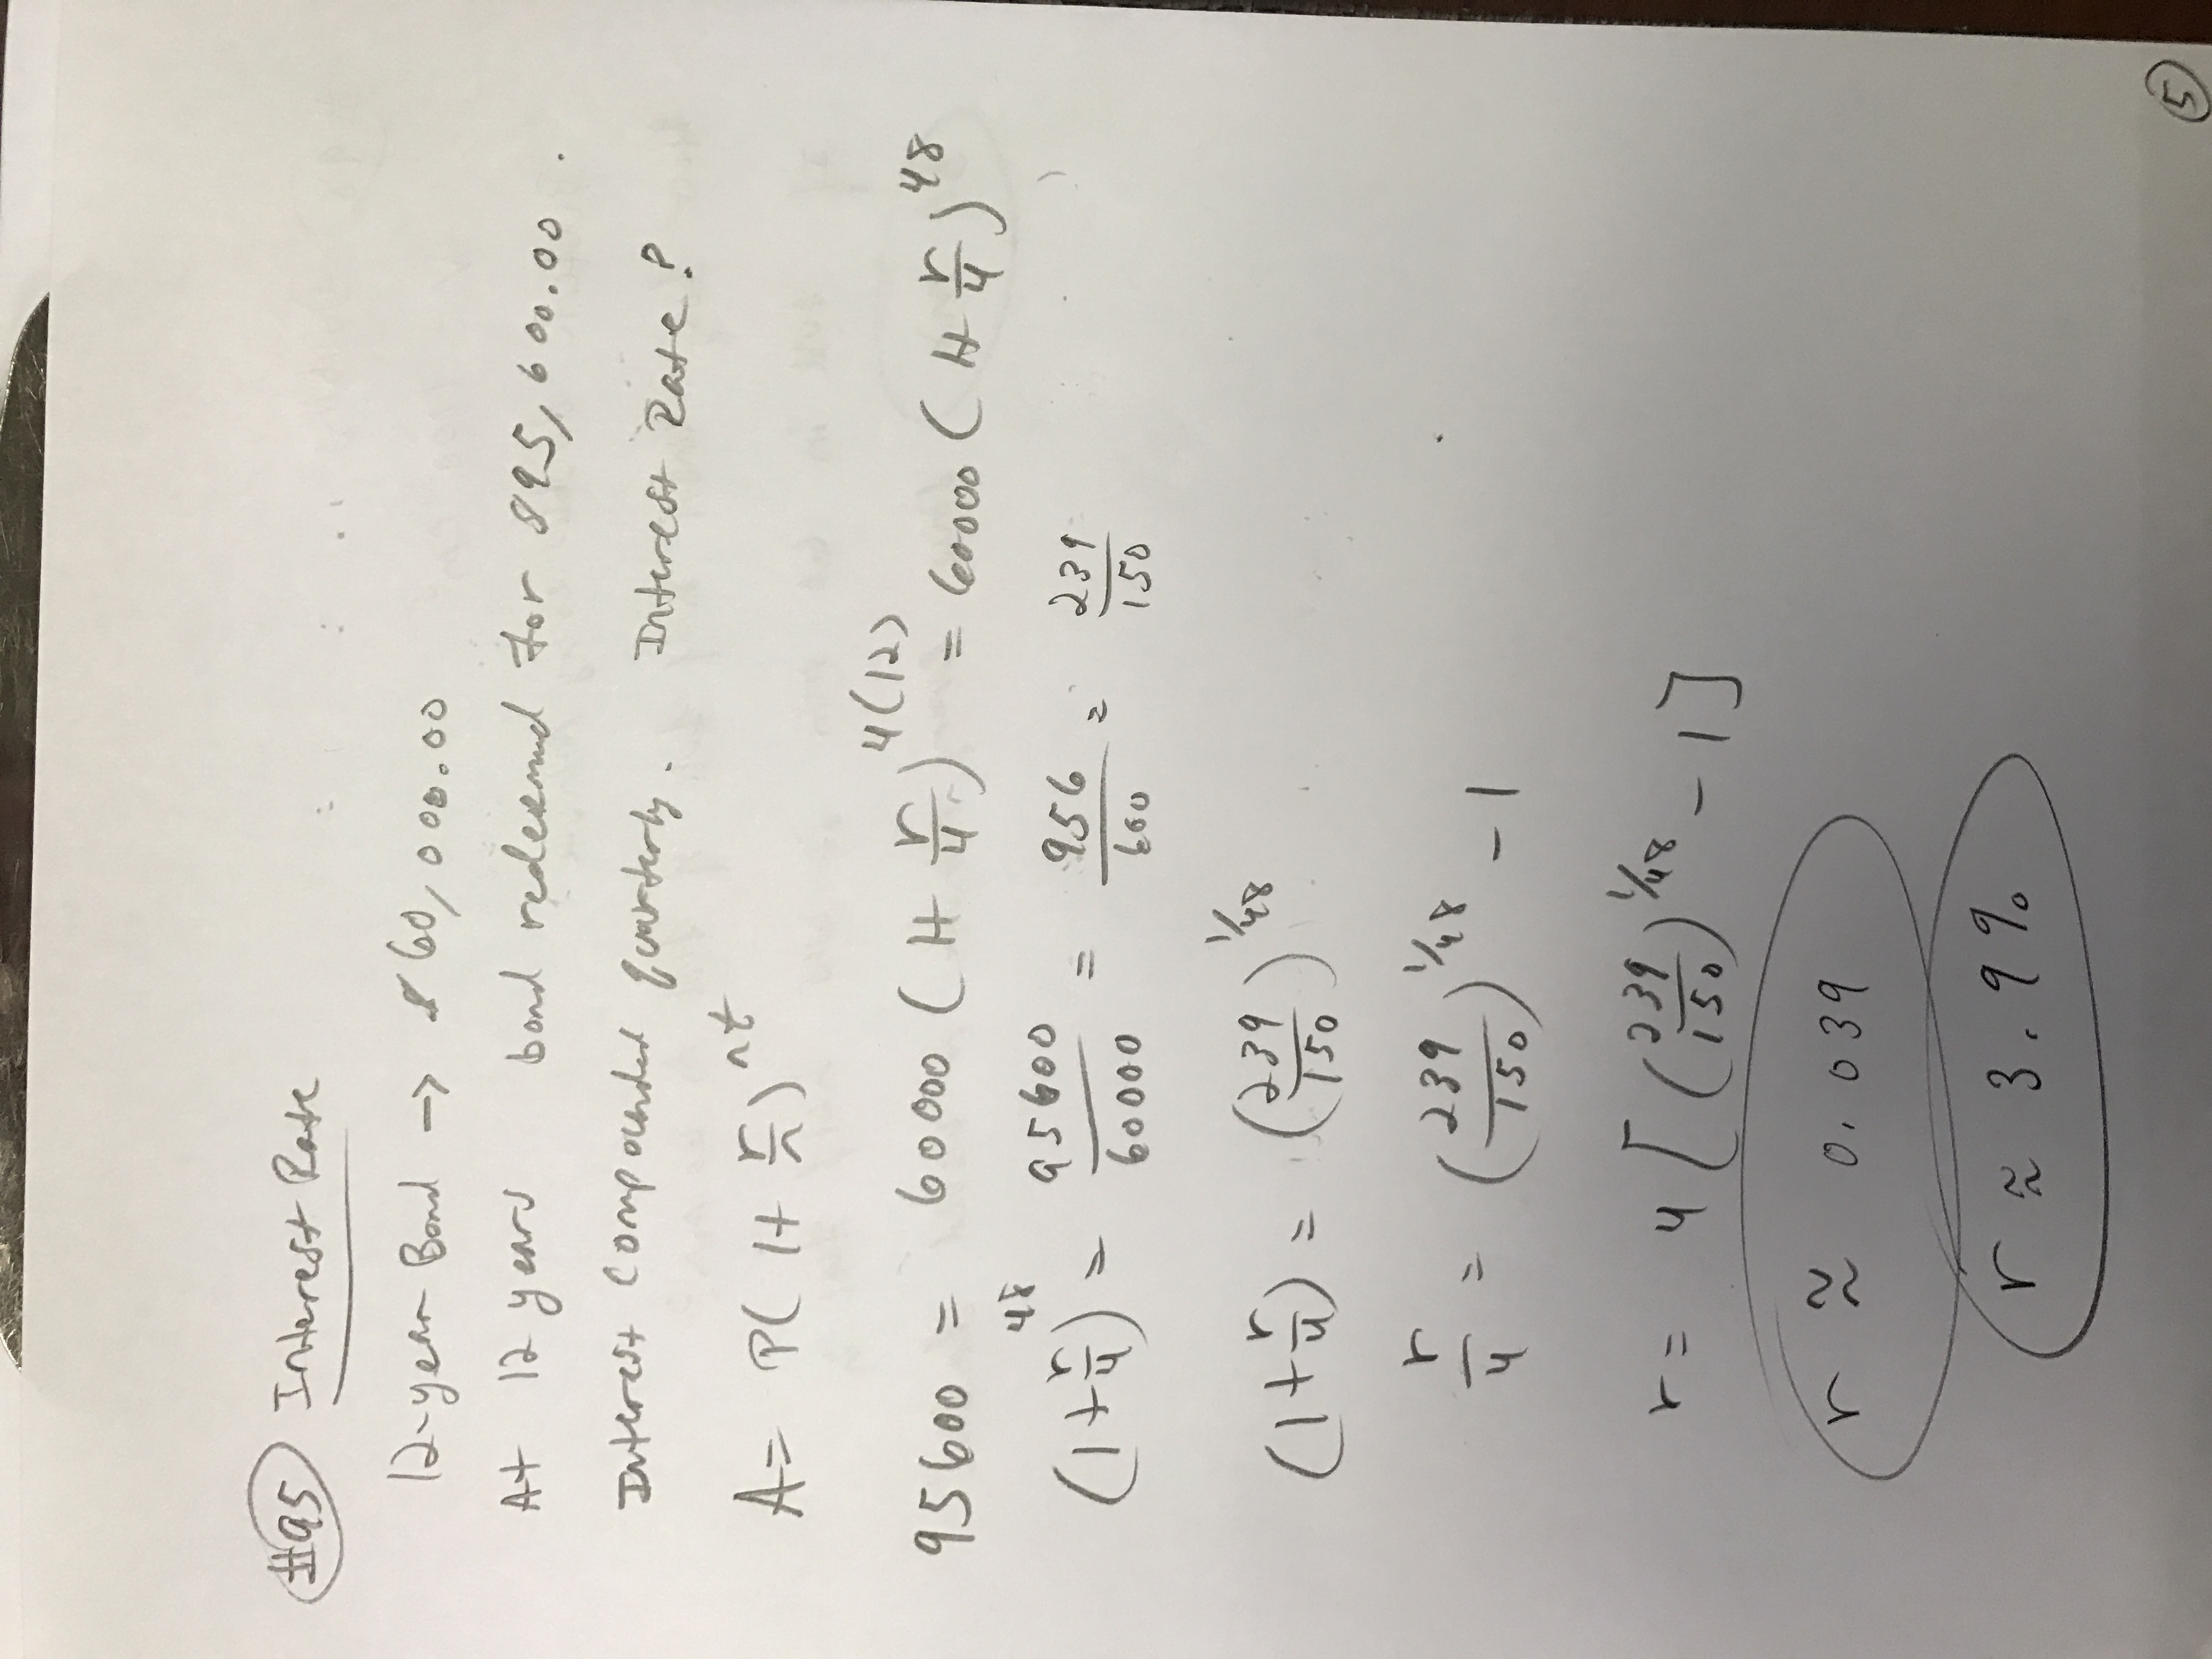 #95 Interest Rate
12-year Bond → $60,000.00
At 12 years bond redeemed for $95,600.00.
Interest compounded quarterly. Interest Rate?
A = P(1+r/n)^nt
95600 = 60000(1+r/4)^4(12) = 60000(1+r/4)^48
(1+r/4)^48 = 95600/60000 = 956/600 = 239/150
(1+r/4) = (239/150)^1/48
r/4 = (239/150)^1/48 - 1
r = 4[(239/150)^1/48 - 1]
r ≈ 0.039
r ≈ 3.9%
5